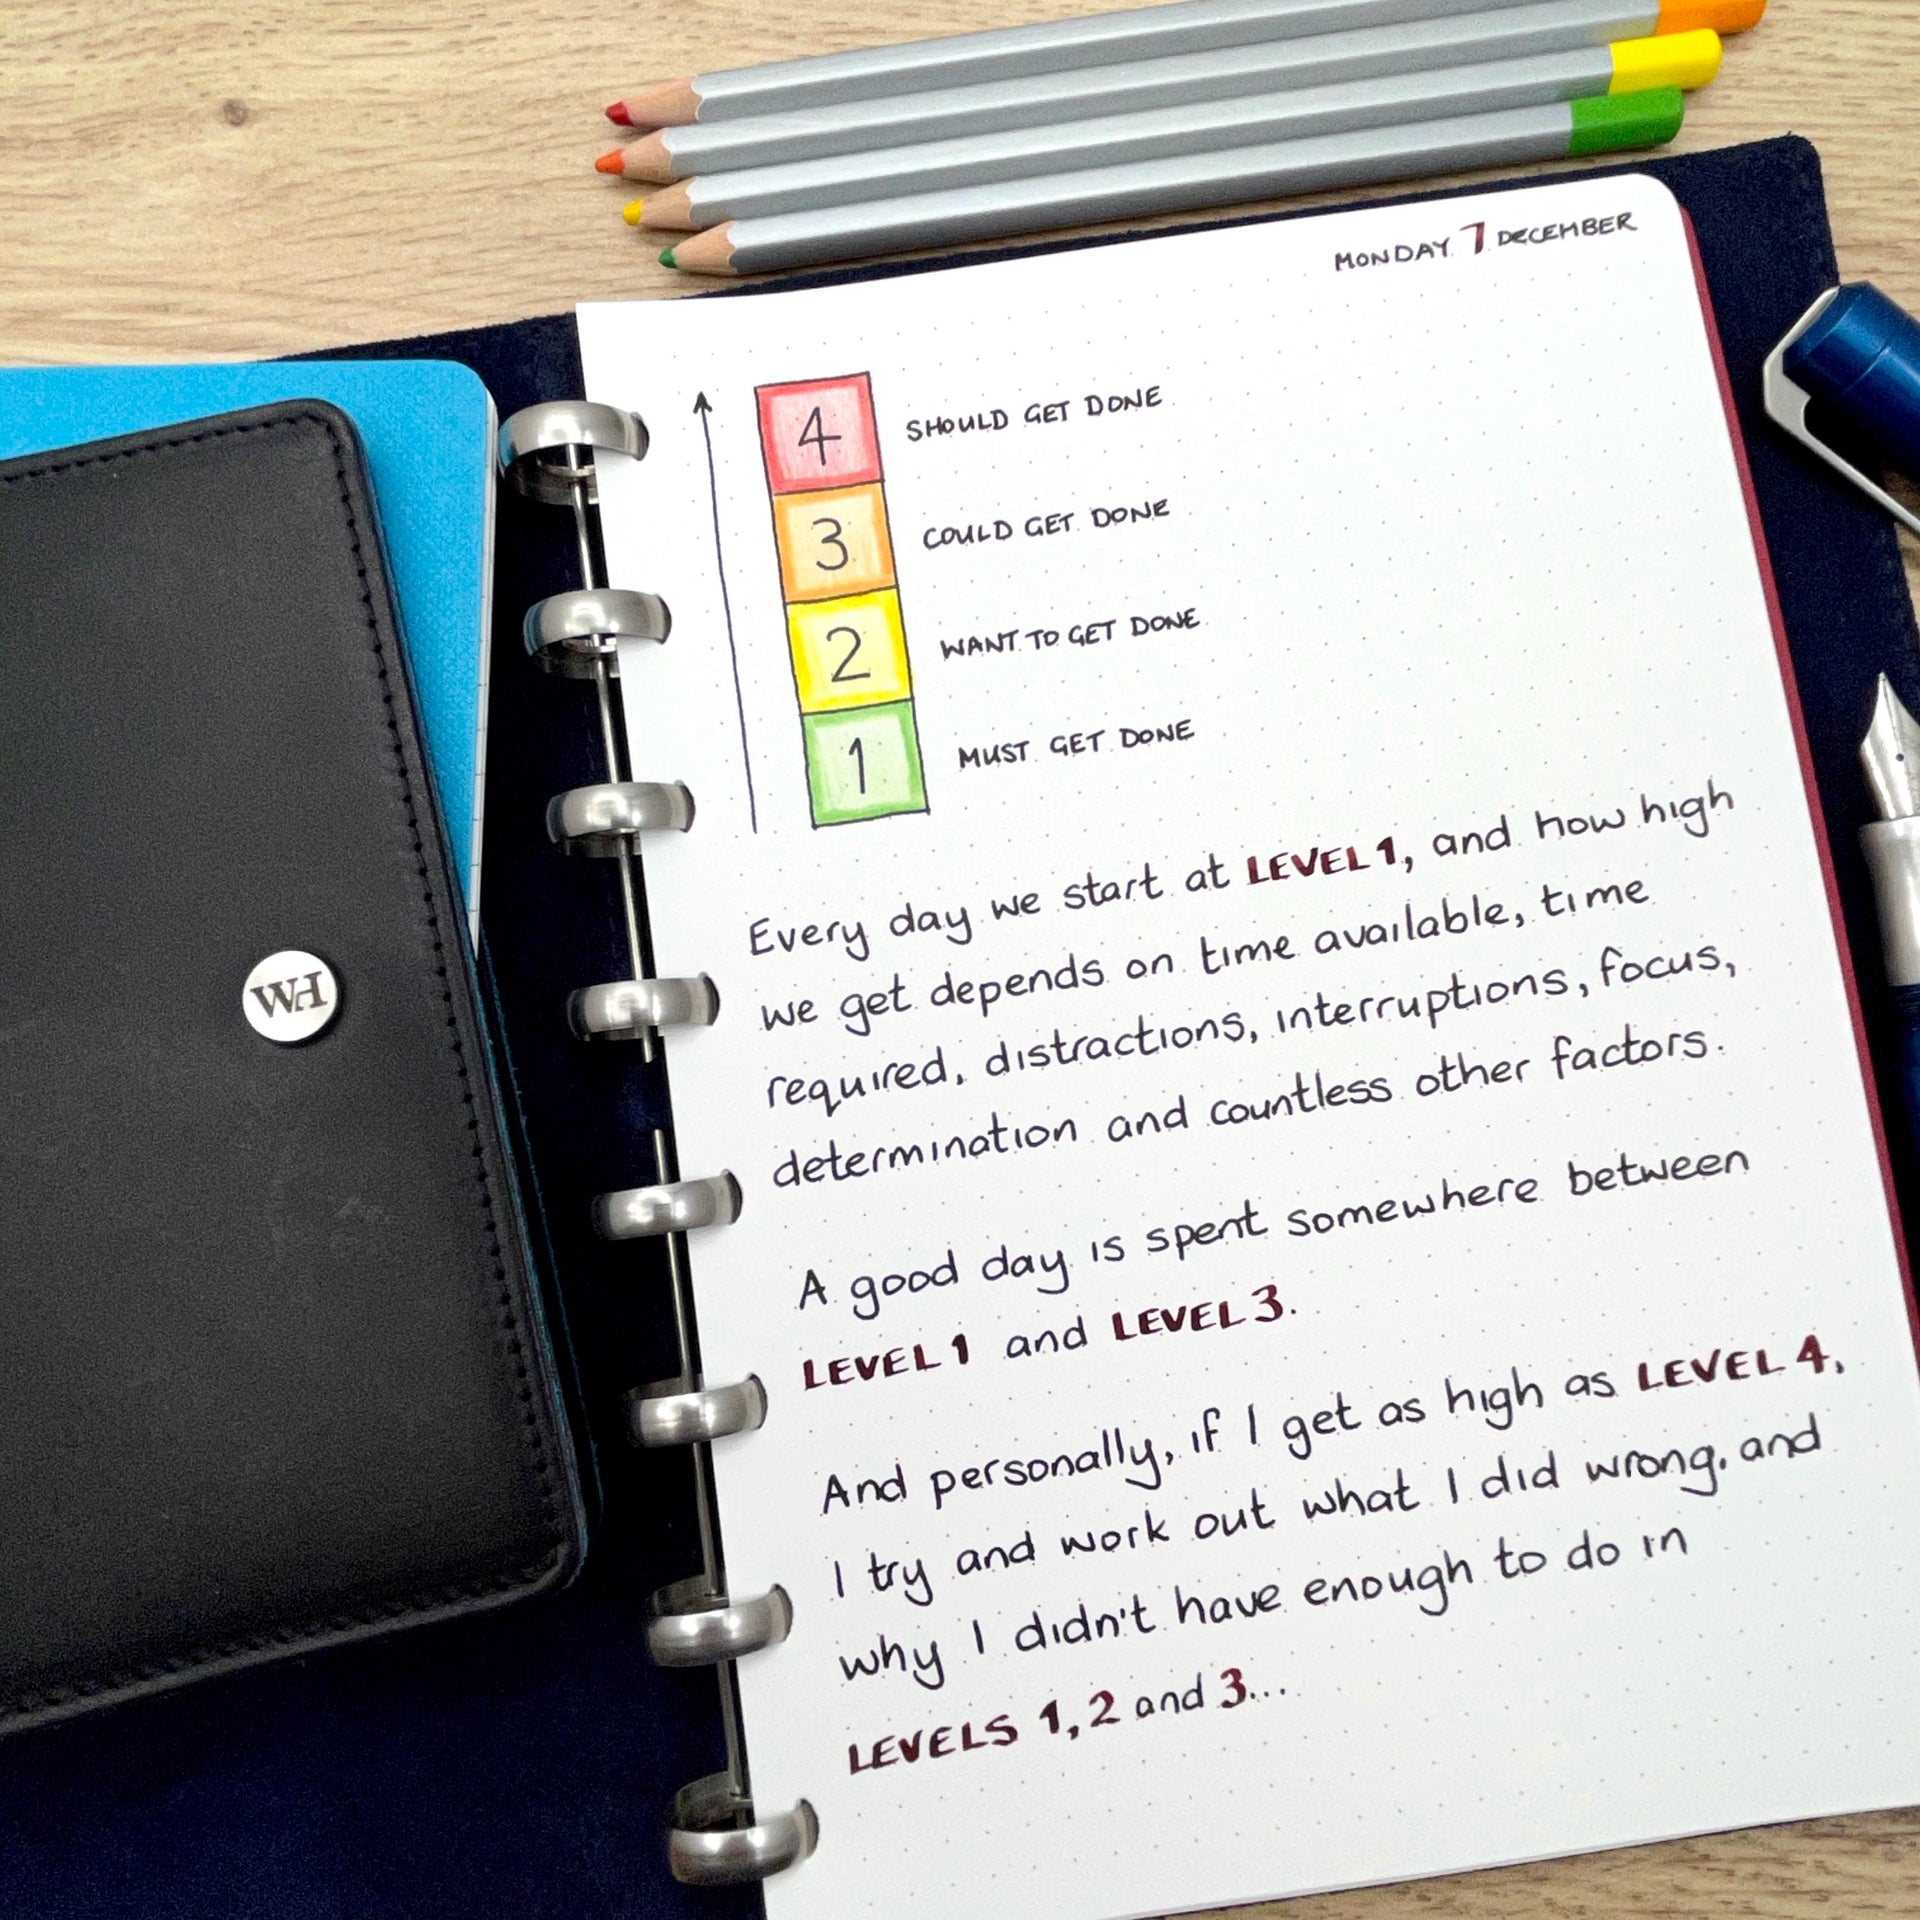 MONDAY 7 DECEMBER
4 SHOULD GET DONE
3 COULD GET DONE
2 WANT TO GET DONE
1 MUST GET DONE
Every day we start at LEVEL 1, and how high
we get depends on time available, time
required, distractions, interruptions, focus,
determination and countless other factors.
A good day is spent somewhere between
LEVEL 1 and LEVEL 3.
And personally, if I get as high as LEVEL 4,
I try and work out what I did wrong, and
why I didn't have enough to do in
LEVELS 1, 2 and 3...
WH